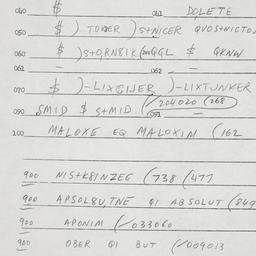 040 $ 041 DOLETE
050 $ ) TOKER ) S+NICER QVOS+NICTOU
060 $ ) S+ORN8IK (200QGL $ QRNW
061 — 062 —
070 $ )-LIXCIJER )-LIXTJNKER
090 SMID $ S+MID (/204020 (268)
091
100 MALOXE EQ MALOXIM (162
900 NIS+K8INZEG (738 (477
900 APSOL8V,TNE QI ABSOLUT (849
900 APONIM (/033060
900 OBER QI BUT (/009013